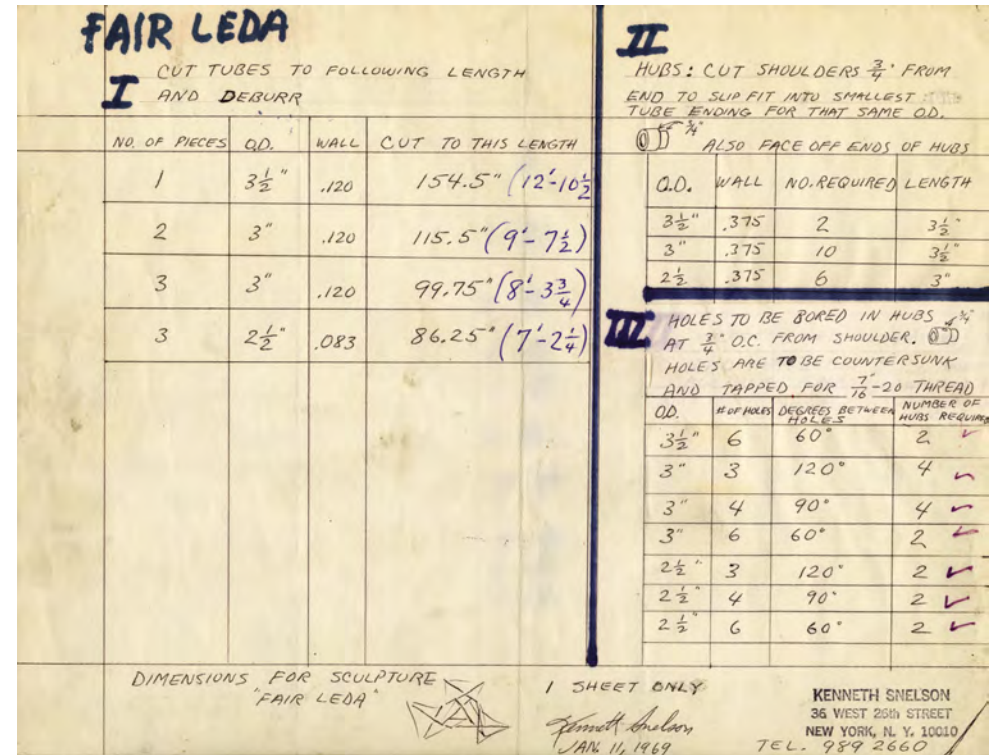 FAIR LEDA
I CUT TUBES TO FOLLOWING LENGTH
AND DEBURR
NO. OF PIECES O.D. WALL CUT TO THIS LENGTH
1 3 1/2" .120 154.5" (12'-10 1/2
2 3" .120 115.5" (9'-7 1/2)
3 3" .120 99.75" (8'-3 3/4)
3 2 1/2" .083 86.25" (7'-2 1/4)
II
HUBS: CUT SHOULDERS 3/4" FROM
END TO SLIP FIT INTO SMALLEST
TUBE ENDING FOR THAT SAME O.D.
3/4"
ALSO FACE OFF ENDS OF HUBS
O.D. WALL NO. REQUIRED LENGTH
3 1/2" .375 2 3 1/2"
3" .375 10 3 1/2"
2 1/2 .375 6 3"
III HOLES TO BE BORED IN HUBS 3/4"
AT 3/4" O.C. FROM SHOULDER.
HOLES ARE TO BE COUNTERSUNK
AND TAPPED FOR 7/16"-20 THREAD
O.D. # OF HOLES DEGREES BETWEEN HOLES NUMBER OF HUBS REQUIRED
3 1/2" 6 60° 2 ✓
3" 3 120° 4 ✓
3" 4 90° 4 ✓
3" 6 60° 2 ✓
2 1/2" 3 120° 2 ✓
2 1/2" 4 90° 2 ✓
2 1/2" 6 60° 2 ✓
DIMENSIONS FOR SCULPTURE
"FAIR LEDA"
1 SHEET ONLY
Kenneth Snelson
JAN. 11, 1969
KENNETH SNELSON
36 WEST 26th STREET
NEW YORK, N. Y. 10010
TEL. 989 2660